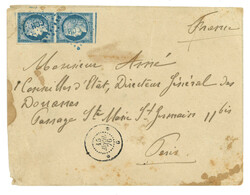 France
Monsieur Arné
Conseiller d'Etat, Directeur Général des
Douanes
Passage Ste Marie St Germain 11 bis
Paris